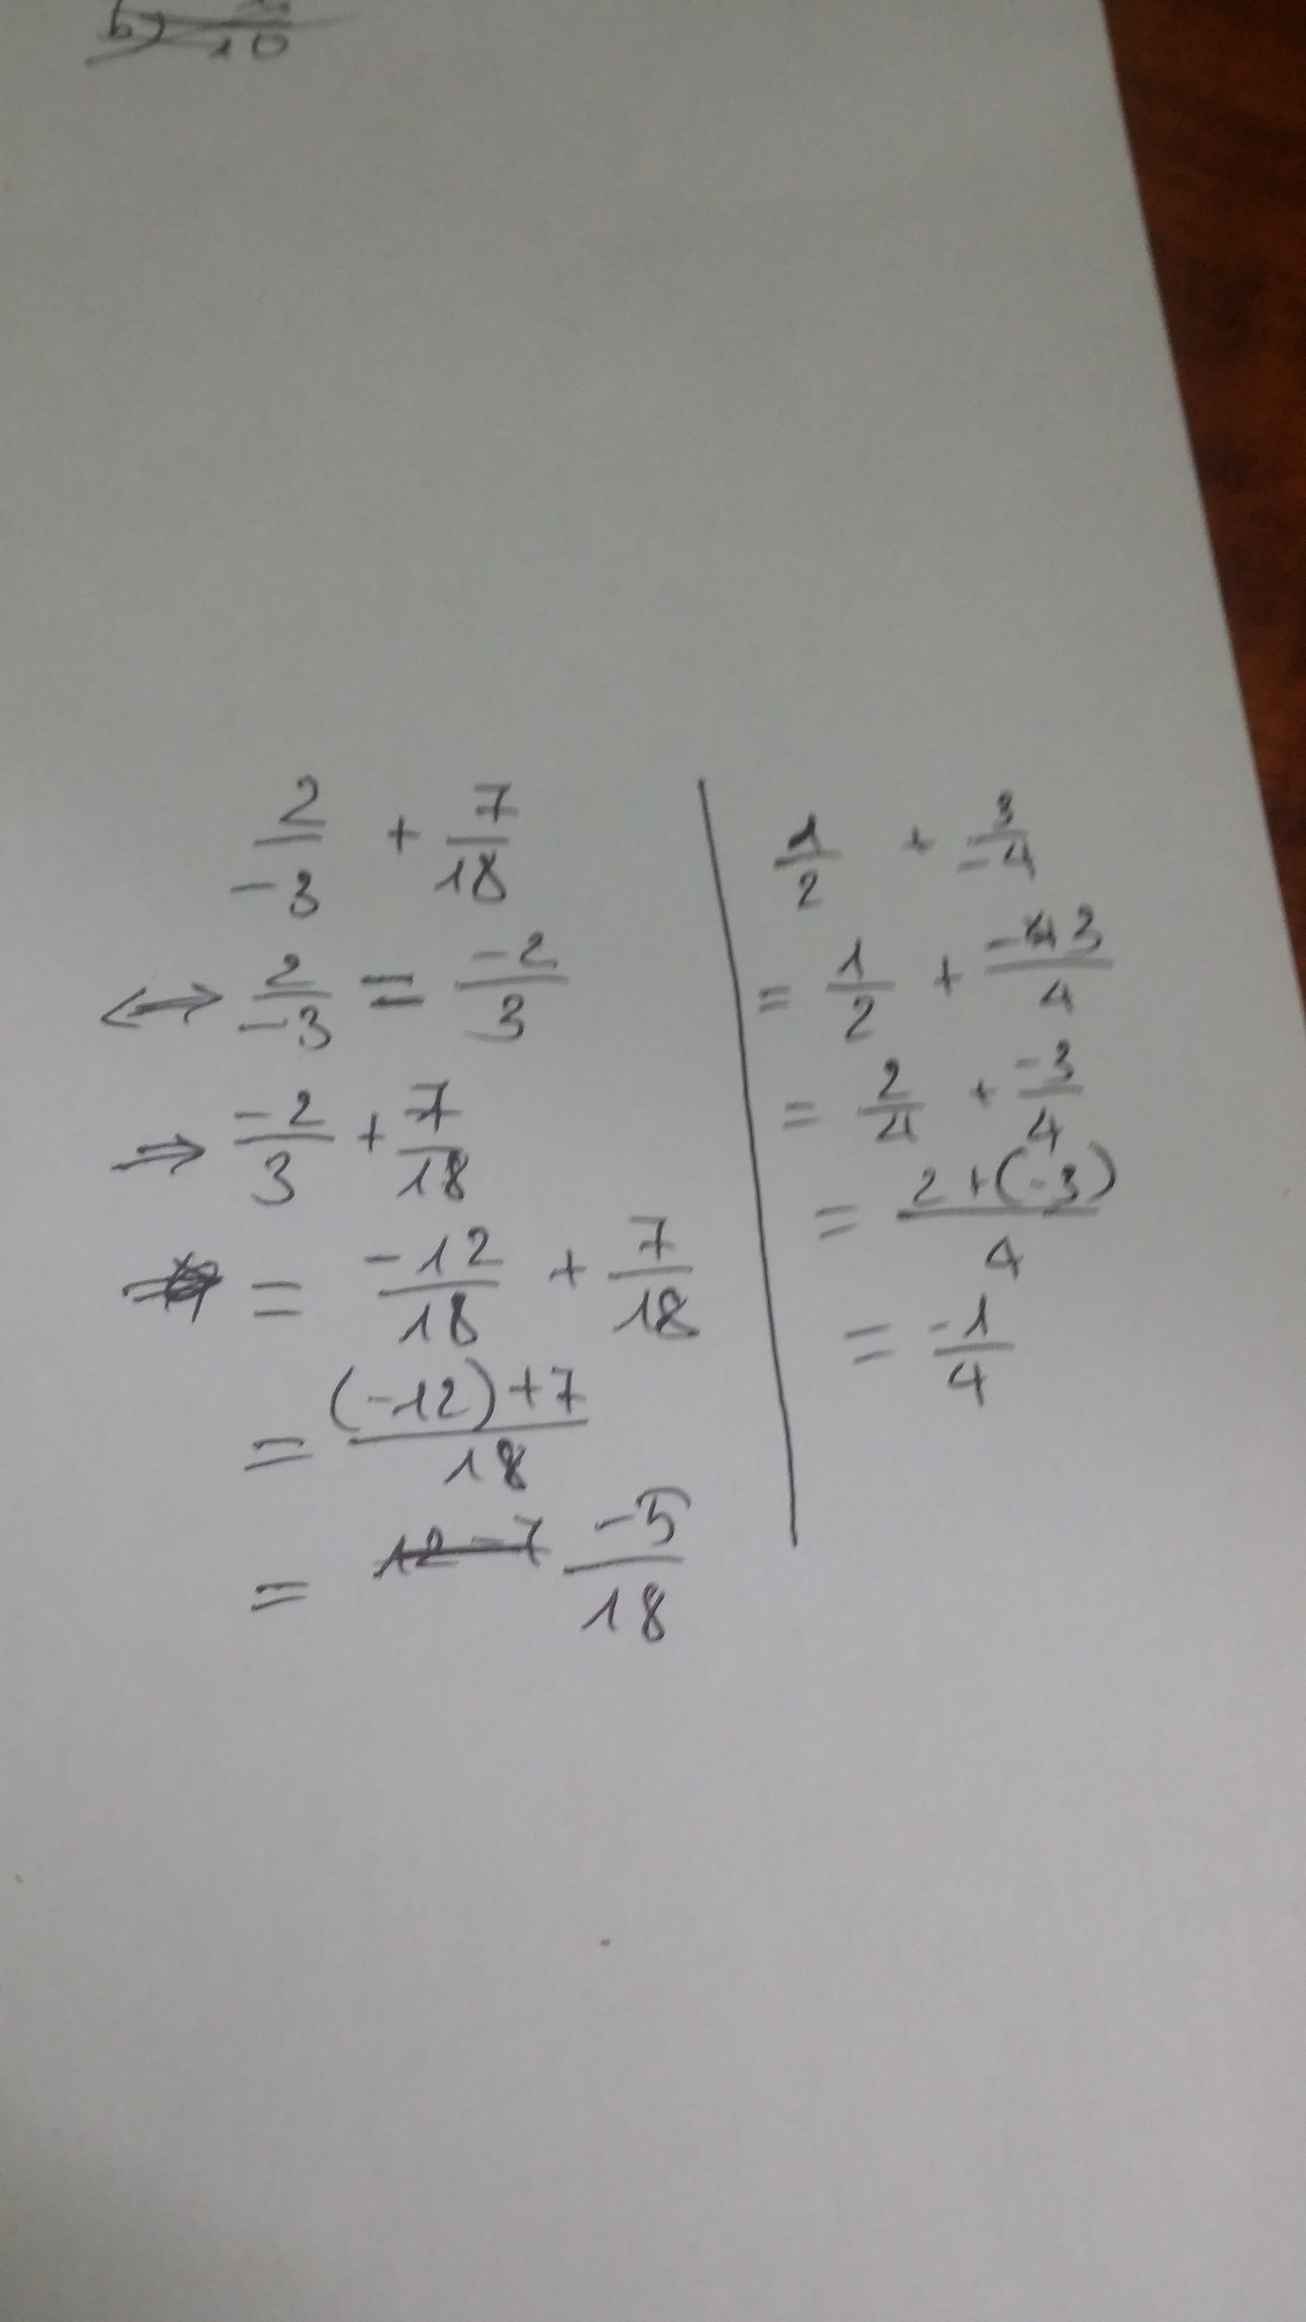 b) /10
2/-3 + 7/18
<=> 2/-3 = -2/3
=> -2/3 + 7/18
= -12/18 + 7/18
= (-12)+7/18
= 12-7 -5/18
1/2 + 3/-4
= 1/2 + -3/4
= 2/4 + -3/4
= 2+(-3)/4
= -1/4